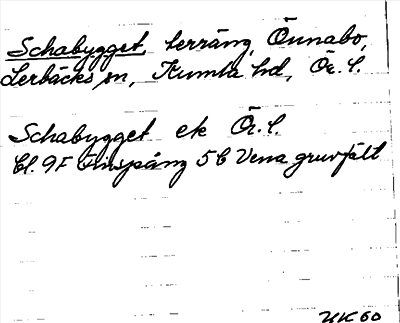 Schabygget, terräng, Önnabo,
Lerbäcks sn, Kumla hd, Ör. l.
Schabygget ek Ör. l.
Bl. 9F Finspång 5C Vena gruvfält
KK 60